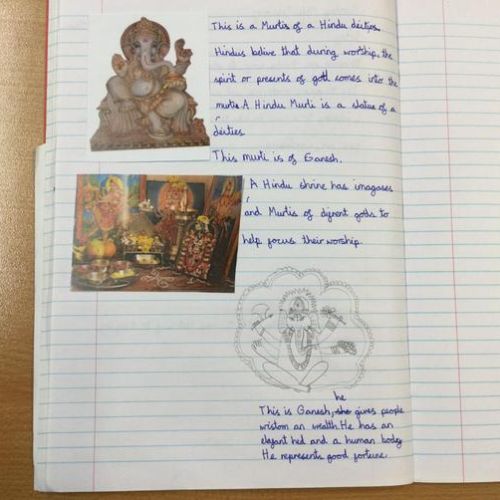 This is a Murtis of a Hindu deities.
Hindus belive that during worship, the
spirit or presents of god comes into the
murtis. A Hindu Murti is a statue of a
deities
This murti is of Ganesh.
A Hindu shrine has imagases
and Murtis of diffrent gods to
help focus their worship.
he
This is Ganesh, she gives people
wistom an wealth. He has an
elefant hed and a human body
He represents good fortune.